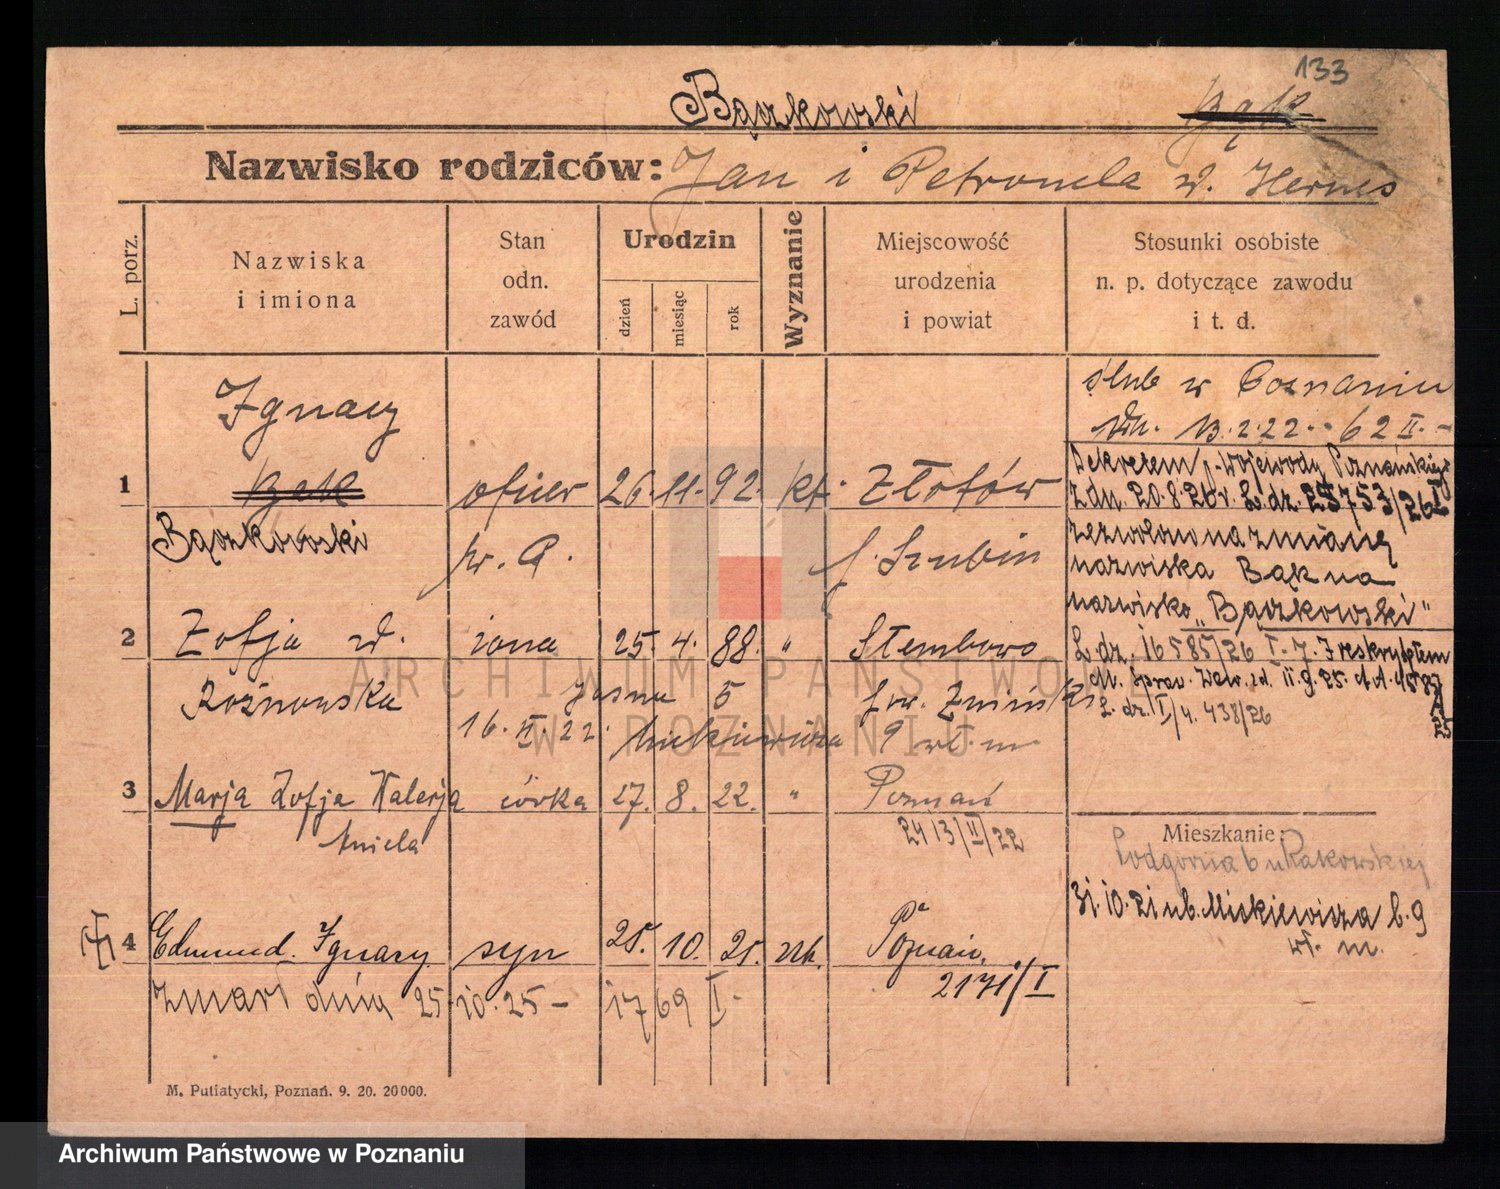 133
Bączkowski
Bąk
Nazwisko rodziców: Jan i Petronela z d. Hernes
L. porz.
Nazwiska
i imiona
Stan
odn.
zawód
Urodzin
dzień
miesiąc
rok
Wyznanie
Miejscowość
urodzenia
i powiat
Stosunki osobiste
n. p. dotyczące zawodu
i t. d.
ślub w Poznaniu
dn. 13.2.22. 62 II.-
1 Ignacy
Bąk oficer 26. 11. 92. kt. Złotów
Bączkowski w. P. Szubin
Dekretem p. Wojewody Poznańskiego
z dn. 20.8.26 r. L. dz. 25753/26 I
zezwolono na zmianę
nazwiska Bąk na
nazwisko "Bączkowski"
L dz. 16585/26 I. 7.
L. dz. I/4. 438/26
2 Zofja zd. żona 25. 4. 88. " Słembowo
Rożnowska Jasna 5 pow. Żniński
16. II. 22. Mickiewicza 9 wł. m.
3 Marja Zofja Walerja córka 27. 8. 22. " Poznań
Aniela 2413/II/22
Mieszkanie:
Podgórna 6 u Rakowskiej
31.10.21 ul. Mickiewicza l. 9
wł. m.
4 Edmund Ignacy syn 25. 10. 25. rzk. Poznań.
2171/I
zmarł dnia 25.10.25 – 1769 I -
M. Putiatycki, Poznań. 9. 20. 20000.
ARCHIWUM PAŃSTWOWE
W POZNANIU
Archiwum Państwowe w Poznaniu